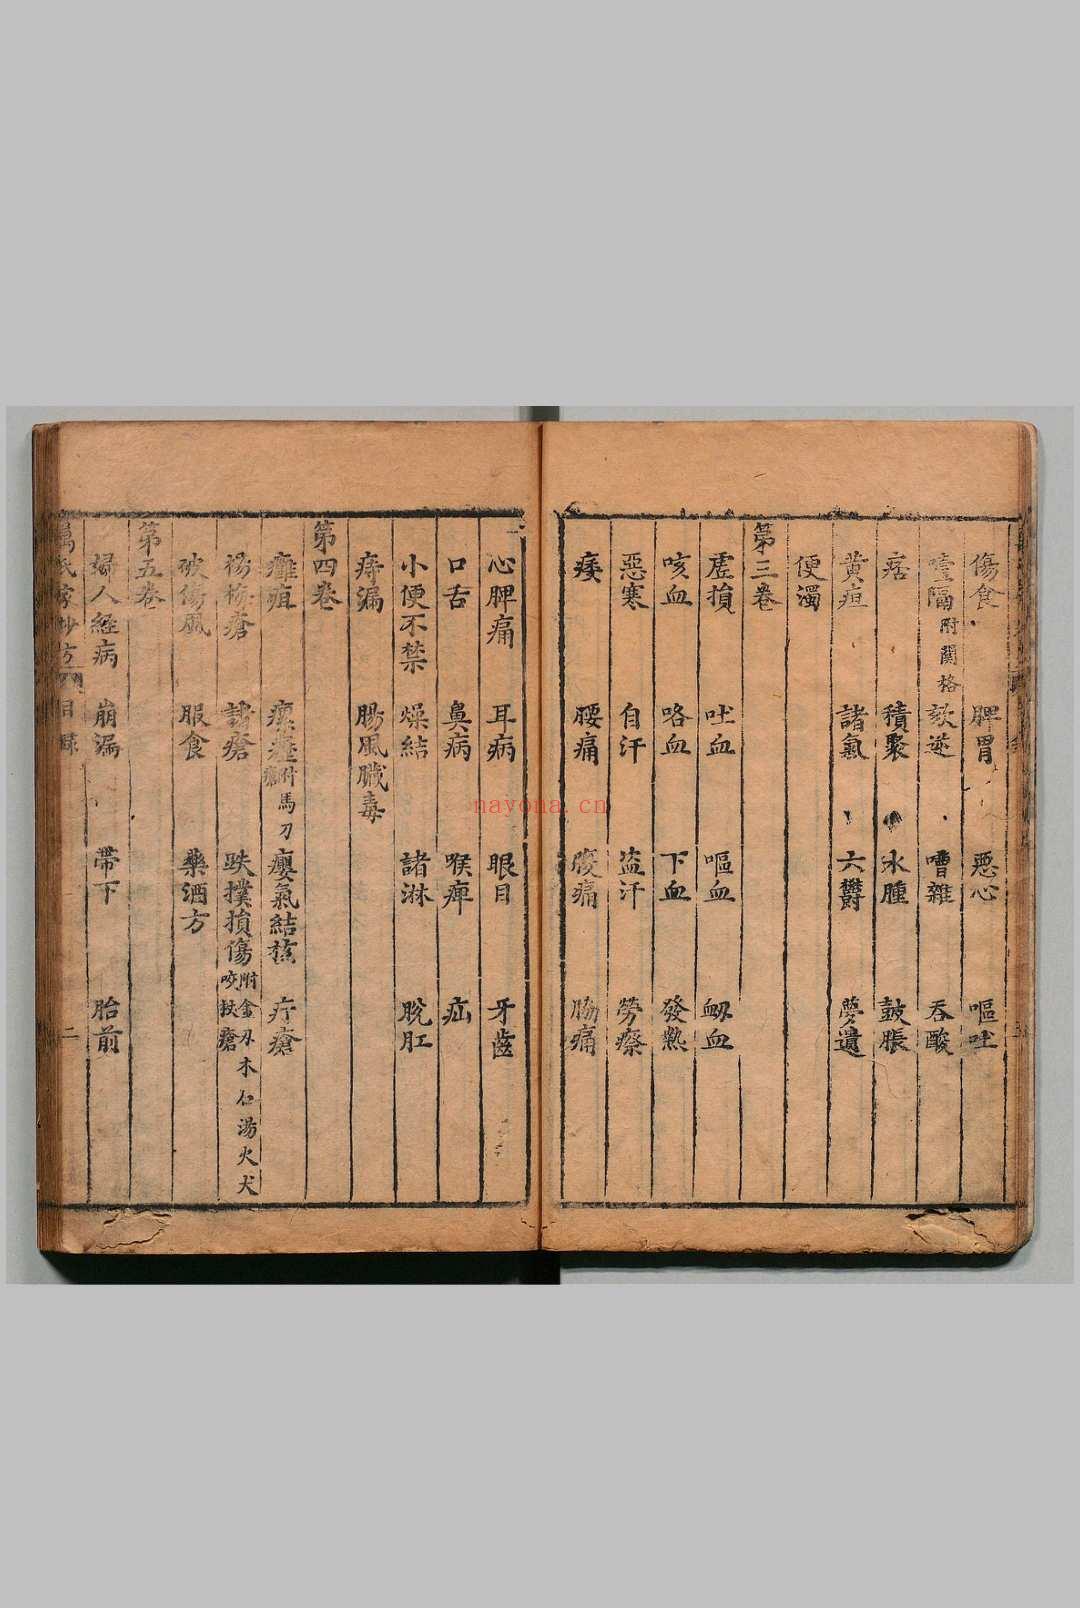 傷食 脾胃 惡心 嘔吐
噎隔附關格 欬逆 嘈雜 吞酸
痞 積聚 水腫 鼓脹
黄疸 諸氣 六欝 夢遺
便濁
第三卷
虛損 吐血 嘔血 衂血
咳血 咯血 下血 發熱
惡寒 自汗 盜汗 勞瘵
痿 腰痛 腹痛 脇痛
心脾痛 耳病 眼目 牙齒
口舌 鼻病 喉痺 疝
小便不禁 燥結 諸淋 脫肛
痔漏 腸風臟毒
第四卷
癰疽 瘰癧附馬刀 癭氣結核 疔瘡
楊梅瘡 諸瘡 跌撲損傷附金刃木仁湯火犬咬扙瘡
破傷風 服食 藥酒方
第五卷
婦人經病 崩漏 帶下 胎前
萬氏家抄方 目録 二
nayona.cn